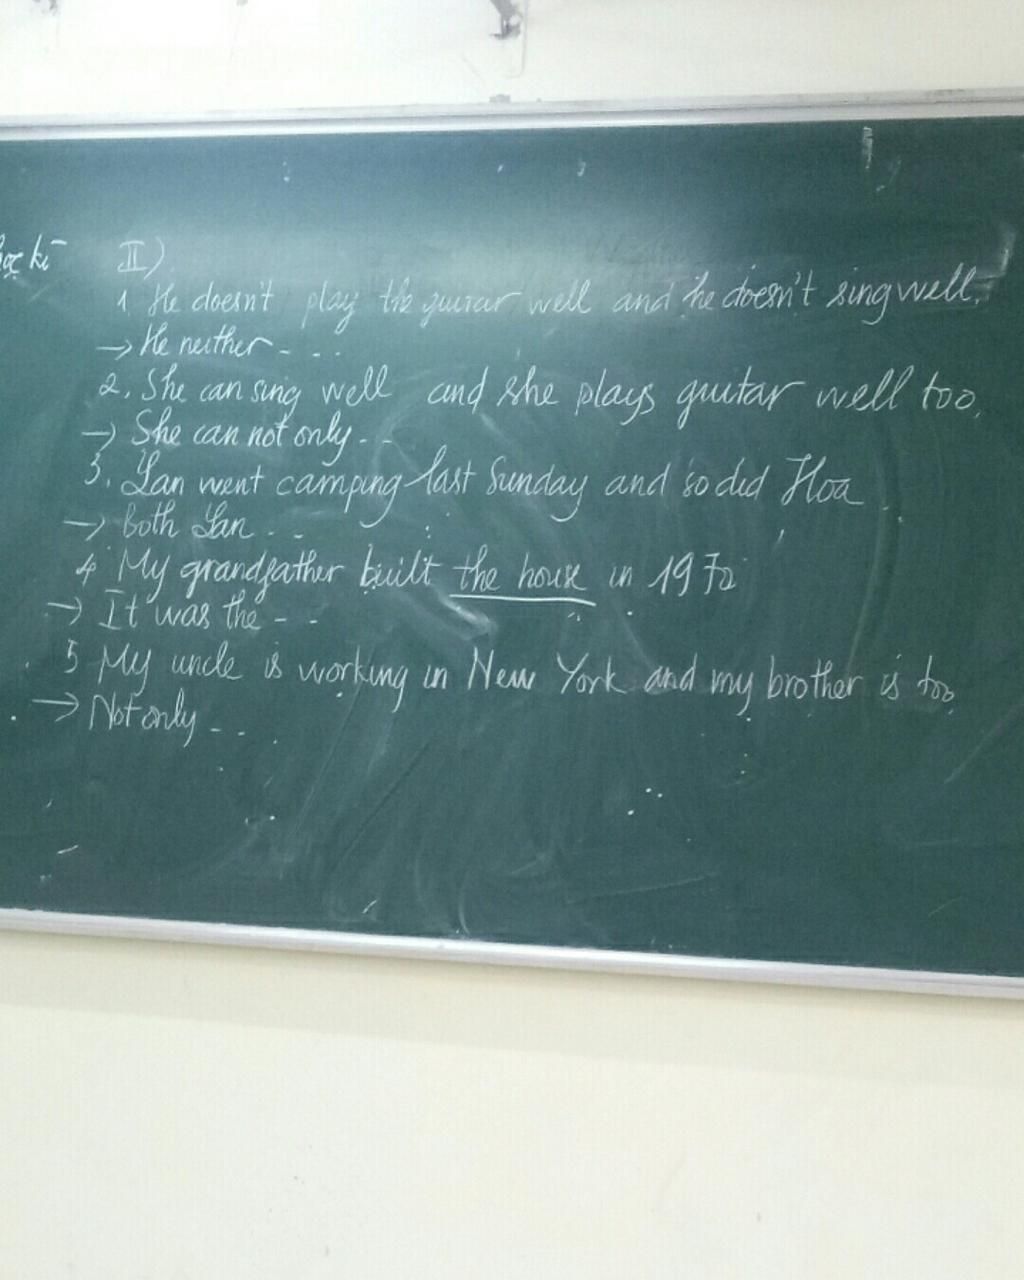 học kì
II)
1. He doesn't play the guitar well and he doesn't sing well.
→ He neither - . . .
2. She can sing well and she plays guitar well too.
→ She can not only - - -
3. Lan went camping last Sunday and so did Hoa
→ Both Lan - - -
4 My grandfather built the house in 1972
→ It was the - - -
5 My uncle is working in New York and my brother is too.
→ Not only - - -